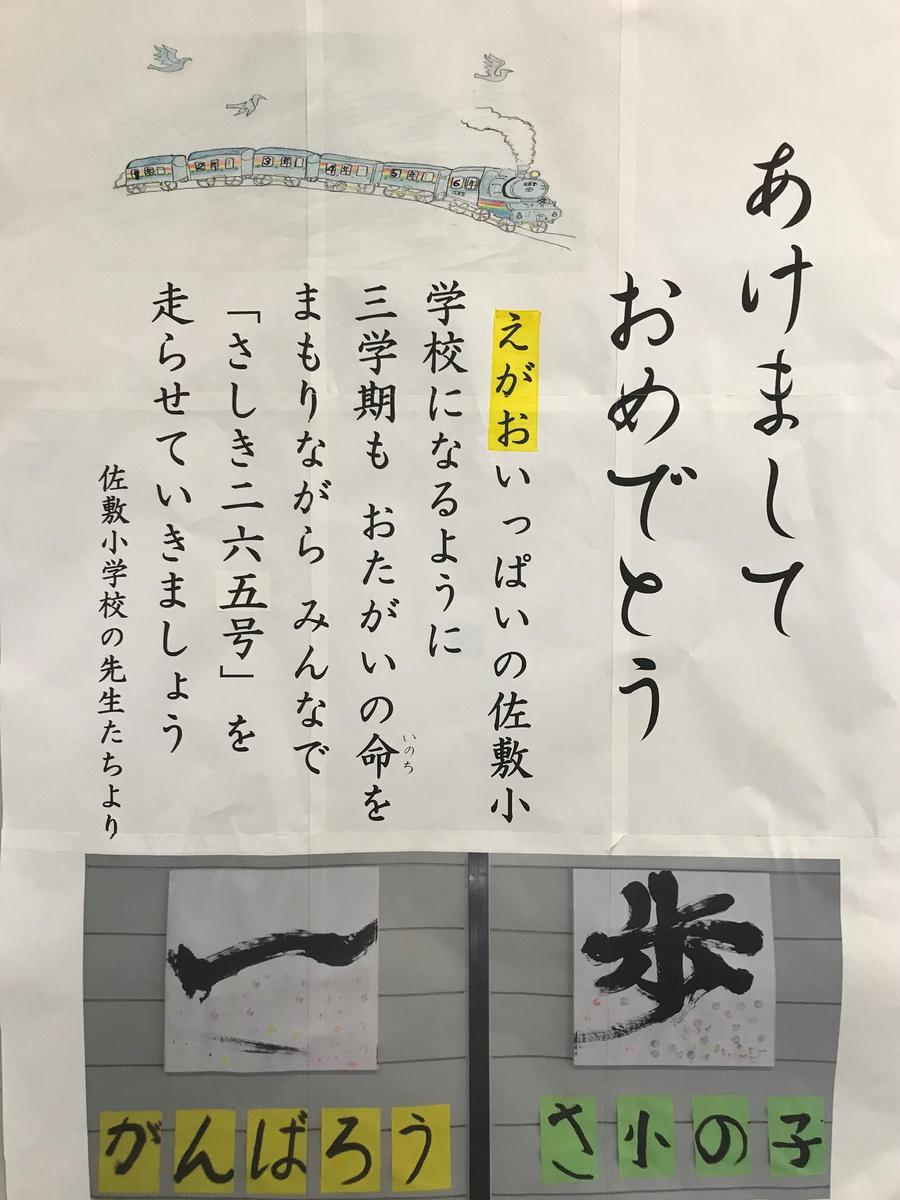 あけまして
おめでとう
えがおいっぱいの佐敷小
学校になるように
三学期も おたがいの命を
いのち
まもりながら みんなで
「さしき二六五号」を
走らせていきましょう
佐敷小学校の先生たちより
1年
2年
3年
4年
5年
6年
一
歩
がんばろう
さ小の子